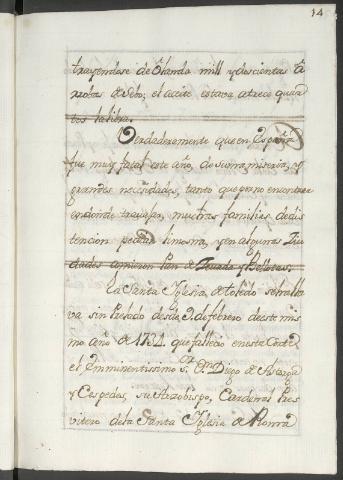 14
trayendose de Olanda mill y doscientas a
rrobas de Sebo; el aceite estava a trece quar
tos la libra.
Verdaderamente que en España
fue muy fatal este año, de suma miseria, y
grandes necesidades, tanto que por no encontrar
en donde travajar, muchas familias de dis
tencion pedian limosna, y en algunas Ciu
dades comieron Pan de Zevada y Bellotas.
La Santa Iglesia, de Toledo se halla
va sin Prelado desde 9. de febrero de este mis
mo año de 1734. que fallecio en esta Corte
el Eminentissimo S.or D.n Diego de Astorga
y Cespedes, su Arzobispo, Cardenal Pres
vitero de la Santa Iglesia de Roma